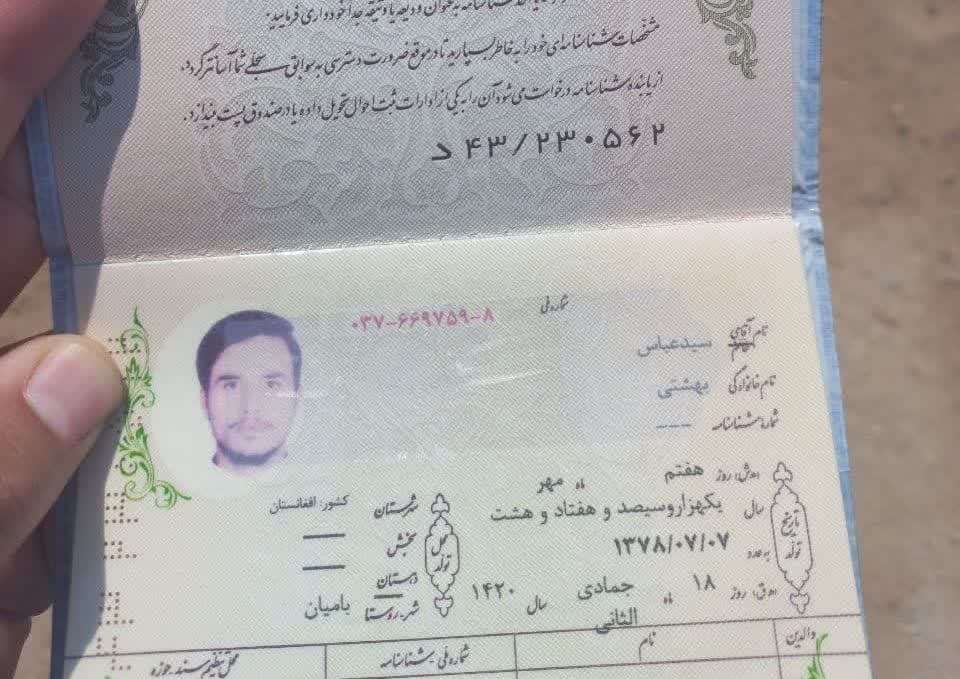 مشخصات شناسنامه‌ای خود را به خاطر بسپارید تا در موقع ضرورت دسترسی به سوابق سجلی شما آسانتر گردد.
از یابنده شناسنامه درخواست می‌شود آن را به یکی از ادارات ثبت احوال تحویل داده یا در صندوق پست بیندازد.
د ۴۳/۲۳۰۵۶۲
شماره ملی ۰۳۷-۶۶۹۷۵۹-۸
نام آقای خانم سیدعباس
نام خانوادگی بهشتی
شماره شناسنامه ---
تاریخ تولد
(ه.ش) روز هفتم ماه مهر
سال یکهزاروسیصد و هفتاد و هشت
به عدد ۱۳۷۸/۰۷/۰۷
(ه.ق) روز ۱۸ ماه جمادی الثانی سال ۱۴۲۰
محل تولد
شهرستان کشور: افغانستان
بخش —
دهستان —
شهر-روستا بامیان
والدین نام شماره ملی-شناسنامه محل تنظیم سند-حوزه